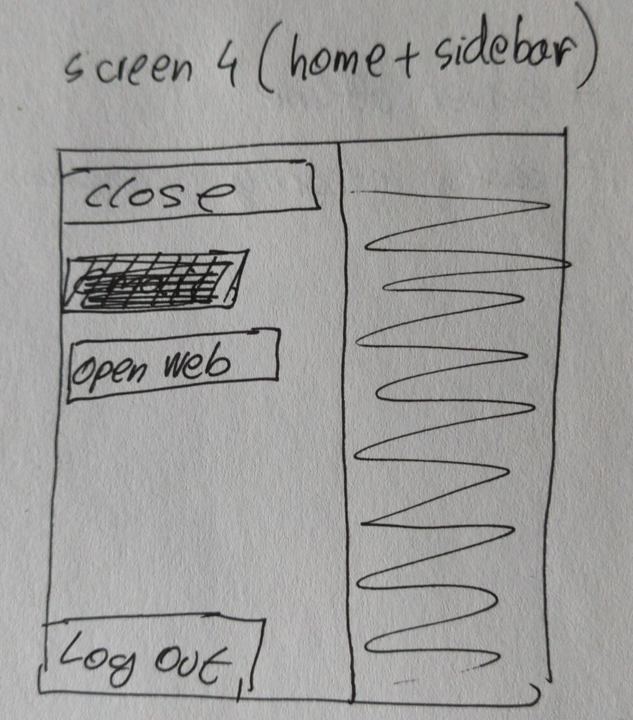 screen 4 (home + sidebar)
close
open web
Log out